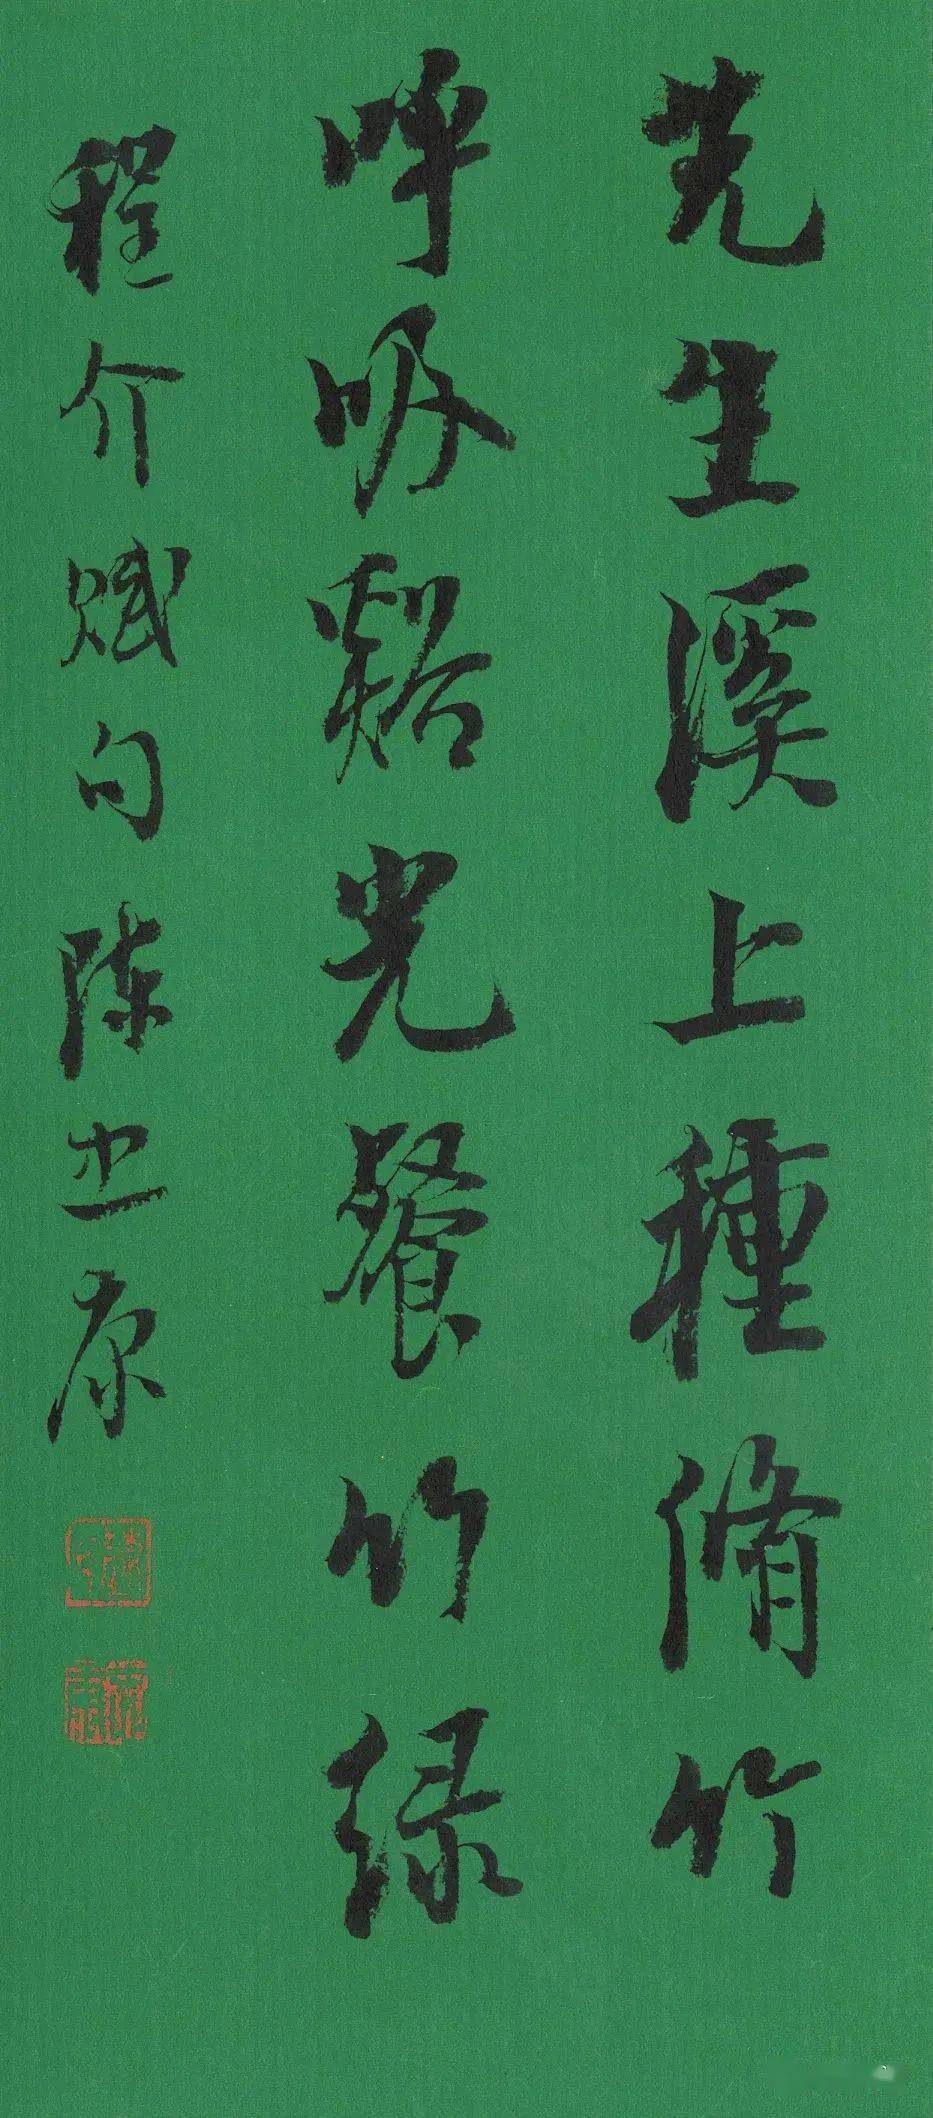 先生溪上種脩竹
呼吸谿光餐竹绿
程介賦句陳忠康